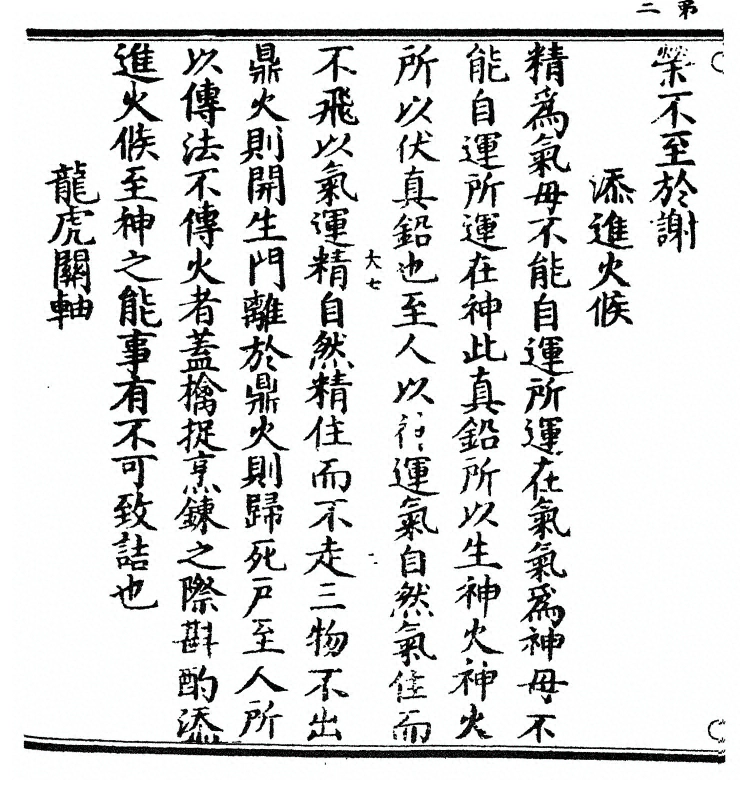 第二
榮不至於謝
添進火候
精爲氣母不能自運所運在氣氣爲神母不
能自運所運在神此真鉛所以生神火神火
所以伏真鉛也至人以神運氣自然氣住而
大七
不飛以氣運精自然精住而不走三物不出
鼎火則開生門離於鼎火則歸死戶至人所
以傳法不傳火者蓋擒捉烹鍊之際斟酌添
進火候至神之能事有不可致詰也
龍虎關軸